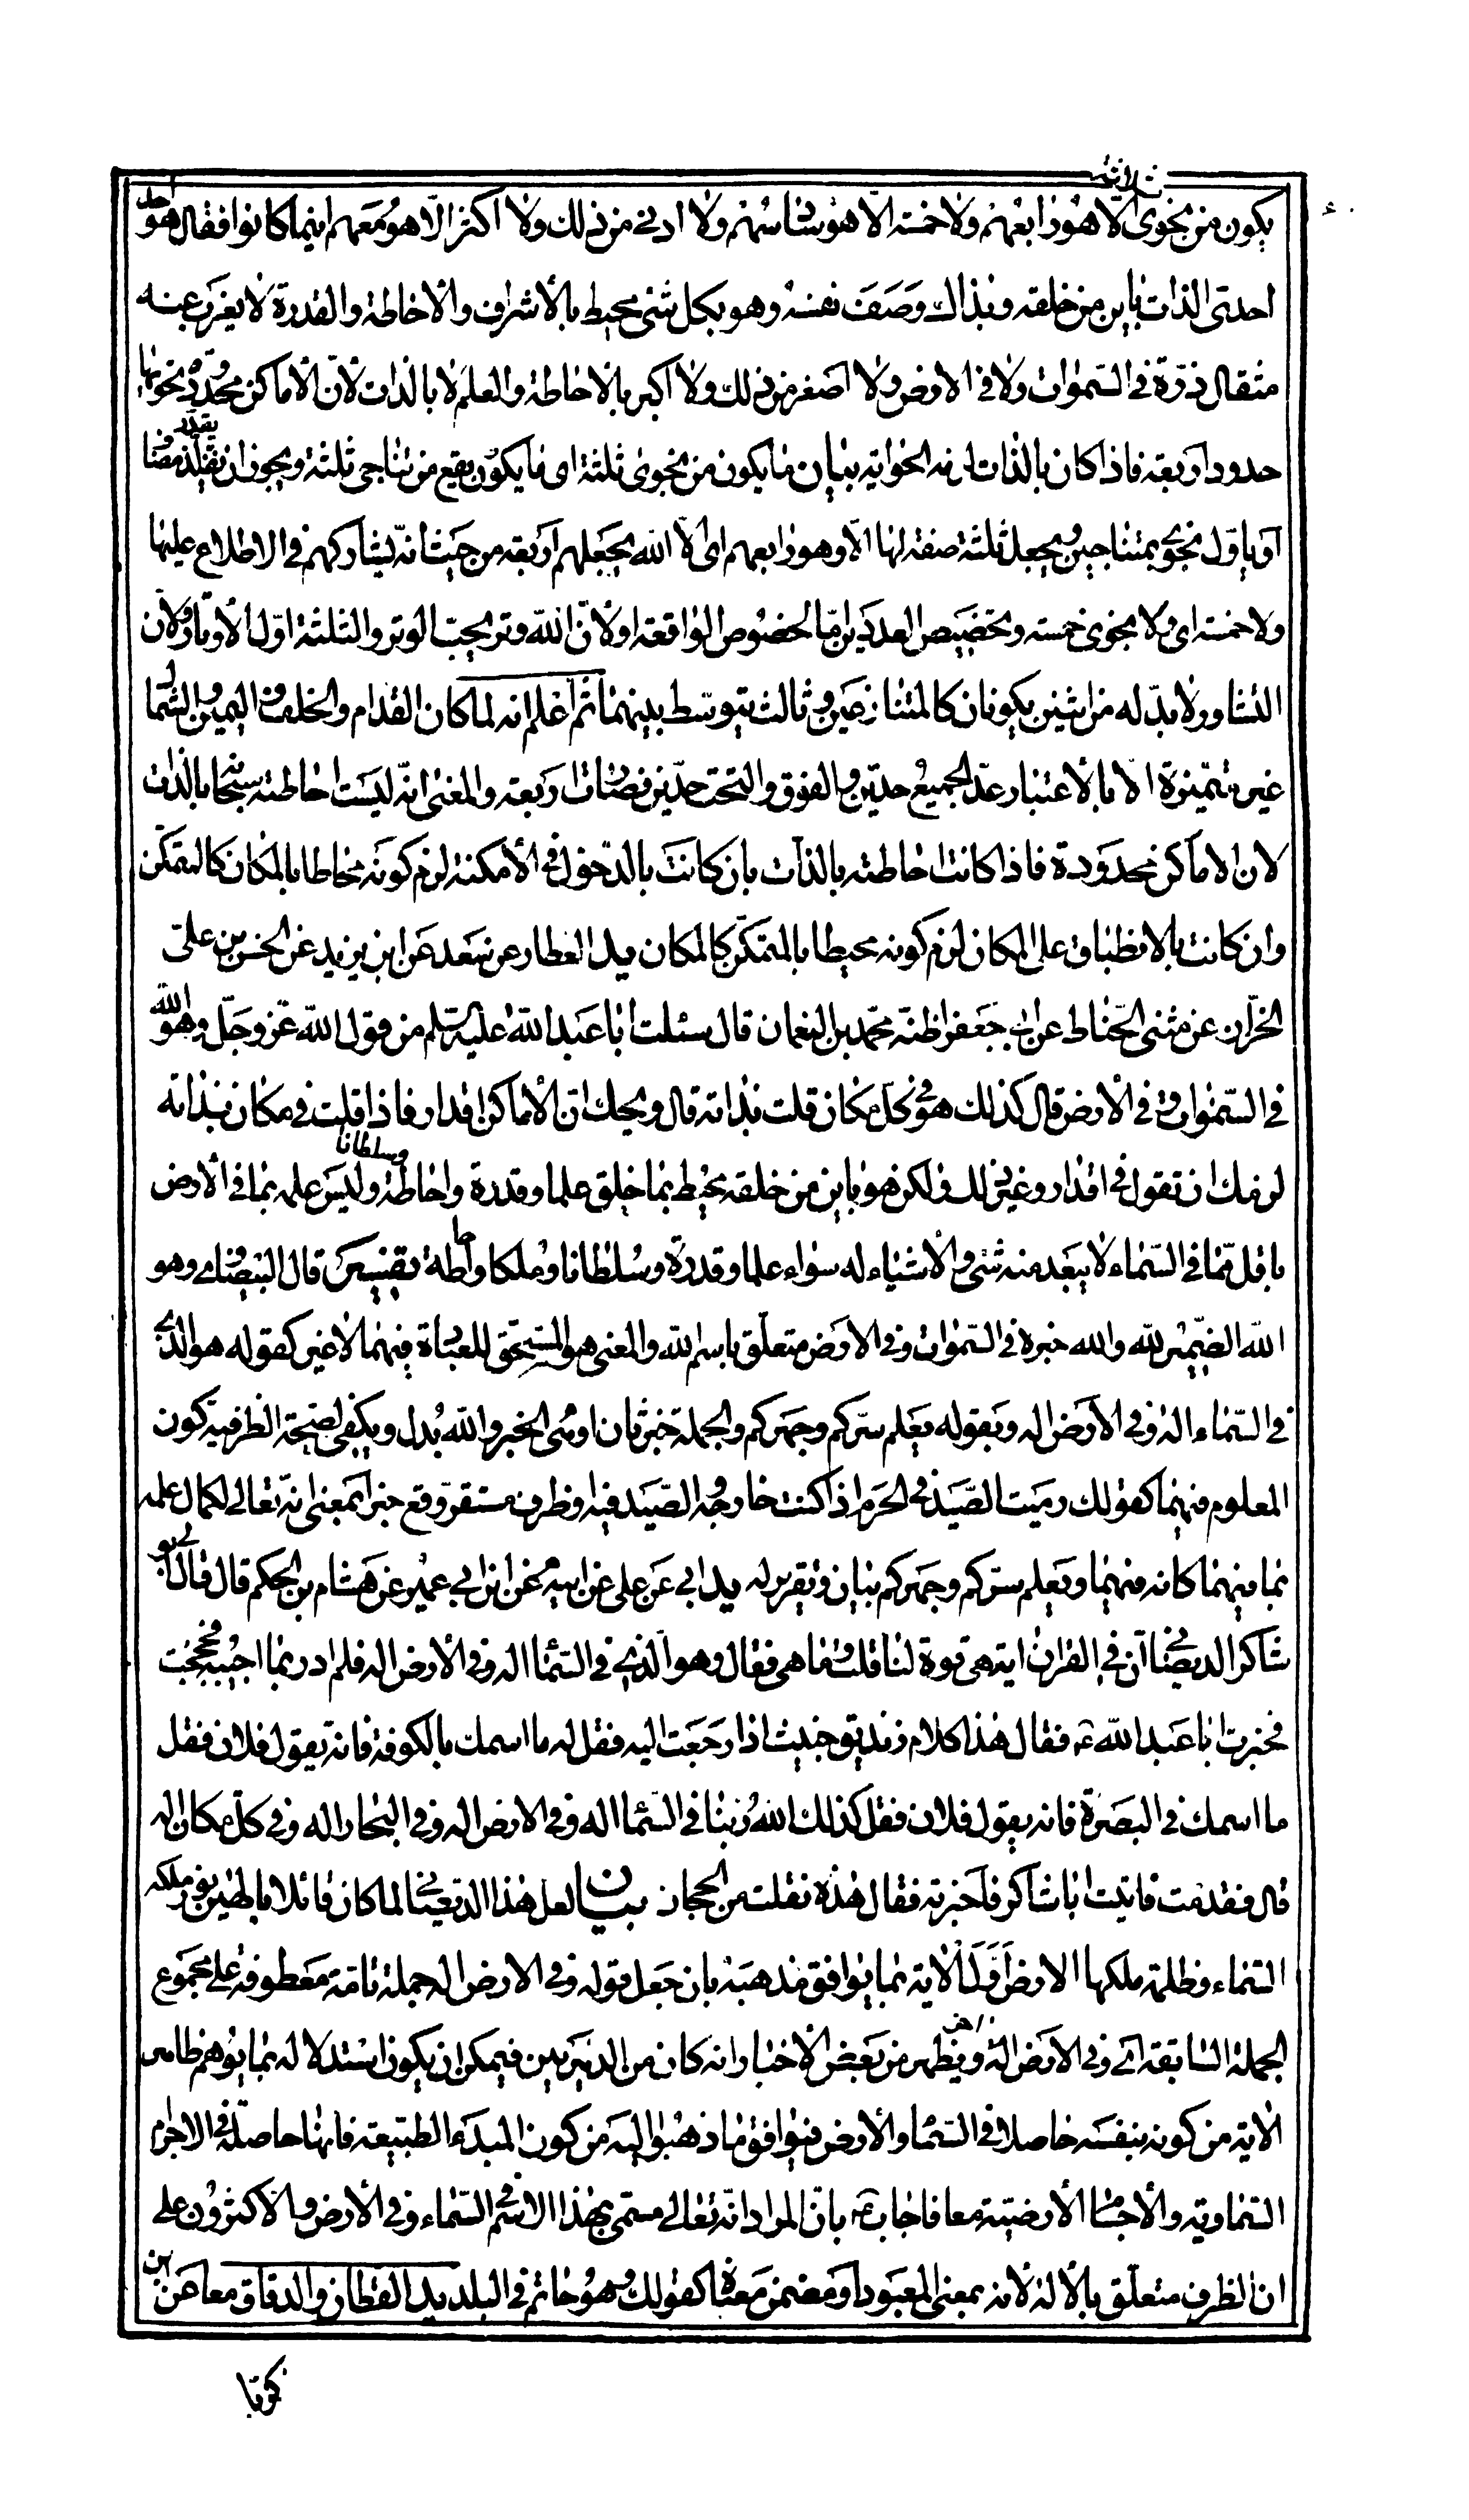 ثلاثة
يكون من نجوى الا هو رابعهم ولا خمسة الا هو سادسهم ولا ادنى من ذلك ولا اكثر الا هو معهم اينما كانوا فقال هو واحد
احدى الذات باين من خلقه وبذاك وصف نفسه وهو بكل شئ محيط بالاشراف والاحاطة والقدرة لا يعزب عنه
مثقال ذرة في السموات ولا في الارض ولا اصغر من ذلك ولا اكبر بالاحاطة والعلم لا بالذات لان الاماكن محدودة تحويها
حدود اربعة فاذا كان بالذات لزمه الحواية بيان ما يكون من نجوى ثلثة اى ما يكون يقع من تناجى ثلثة ويجوز ان يقدر مضاف
او يأول نجوى بمتناجين ويجعل ثلثة صفة لها الا وهو رابعهم اى الا الله يجعلهم اربعة من حيث انه يشاركهم في الاطلاع عليها
ولا خمسة اى ولا نجوى خمسة وتخصيص العددين اما لخصوص الواقعة او لان الله وتر يحب الوتر والثلثة اول الاوتار ولان
التشاور لا بد له من اثنين يكونان كالمتنازعين وثالث يتوسط بينهما ثم اعلم انه لما كان القدام والخلف واليمين والشمال
غير متميزة الا بالاعتبار عد الجميع حدين والفوق والتحت حدين فصارت اربعة والمعنى انه ليست احاطته سبحانه بالذات
لان الاماكن محدودة فاذا كانت احاطته بالذات بان كانت بالدخول في الامكنة لزم كونه محاطا بالمكان كالمتمكن
وان كانت بالانطباق على المكان لزم كونه محيطا بالمتمكن كالمكان يد العطار عن سعد عن ابن يزيد عن الحسن بن على
الخزاز عن مثنى الحناط عن ابى جعفر اظنه محمد بن النعمان قال سئلت ابا عبد الله عليه السلم من قول الله عز وجل وهو الله
في السموات وفي الارض قال كذلك هو في كل مكان قلت بذاته قال ويحك ان الاماكن اقدار فاذا قلت في مكان بذاته
لزمك ان تقول في اقدار وغير ذلك ولكن هو باين من خلقه محيط بما خلق علما وقدرة واحاطة وسلطانا وليس علمه بما في الارض
باقل مما في السماء لا يبعد منه شئ والاشياء له سواء علما وقدرة وسلطانا وملكا واحاطة تفسير قال البيضاوى وهو
الله الضمير لله والله خبره في السموات وفي الارض متعلق باسم الله والمعنى هو المستحق للعبادة فيهما لا غير كقوله هو الذى
في السماء اله وفي الارض اله وبقوله يعلم سركم وجهركم والجملة خبر ثان او هى الخبر والله بدل ويكفى لصحة الظرفية كون
المعلوم فيهما كقولك رميت الصيد في الحرم اذا كنت خارجه والصيد فيه او ظرف مستقر وقع خبرا بمعنى انه تعالى لكمال علمه
بما فيهما كانه فيهما ويعلم سركم وجهركم بيان وتقرير له يد ابى عن على عن ابيه عن ابن ابى عمير عن هشام بن الحكم قال قال لى ابو
شاكر الديصانى ان في القران اية هى قوة لنا قلت وما هى فقال وهو الذى في السماء اله وفي الارض اله فلم ادر بما اجيبه فحججت
فخبرت ابا عبد الله ع فقال هذا كلام زنديق خبيث اذا رجعت اليه فقل له ما اسمك بالكوفة فانه يقول فلان فقل
ما اسمك في البصرة فانه يقول فلان فقل كذلك الله ربنا في السماء اله وفي الارض اله وفي البحار اله وفي كل مكان اله
قال فقدمت فاتيت ابا شاكر فاخبرته فقال هذه نقلت من الحجاز بيان لعل هذا الديصانى لما كان قائلا بالهين نور ملكه
السماء وظلمة ملكها الارض اول الاية بما يوافق مذهبه بان جعل قوله وفي الارض اله جملة تامة معطوفة على مجموع
الجملة السابقة اى وفي الارض اله ويظهر من بعض الاخبار انه كان من الدهريين فيمكن ان يكون استدلاله بما يوهم ظاهر
الاية من كونه بنفسه حاصلا في السماء والارض فيوافق ما ذهبوا اليه من كون المبدء الطبيعة فانها حاصلة في الاجرام
السماوية والاجسام الارضية معا فاجاب ع بان المراد انه تعالى مسمى بهذا الاسم في السماء وفي الارض والاكثرون على
ان الظرف متعلق بالاله لانه بمعنى المعبود او مضمن معناه كقولك هو حاتم في البلد يد القطان والدقاق معا عن ابن
زكريا